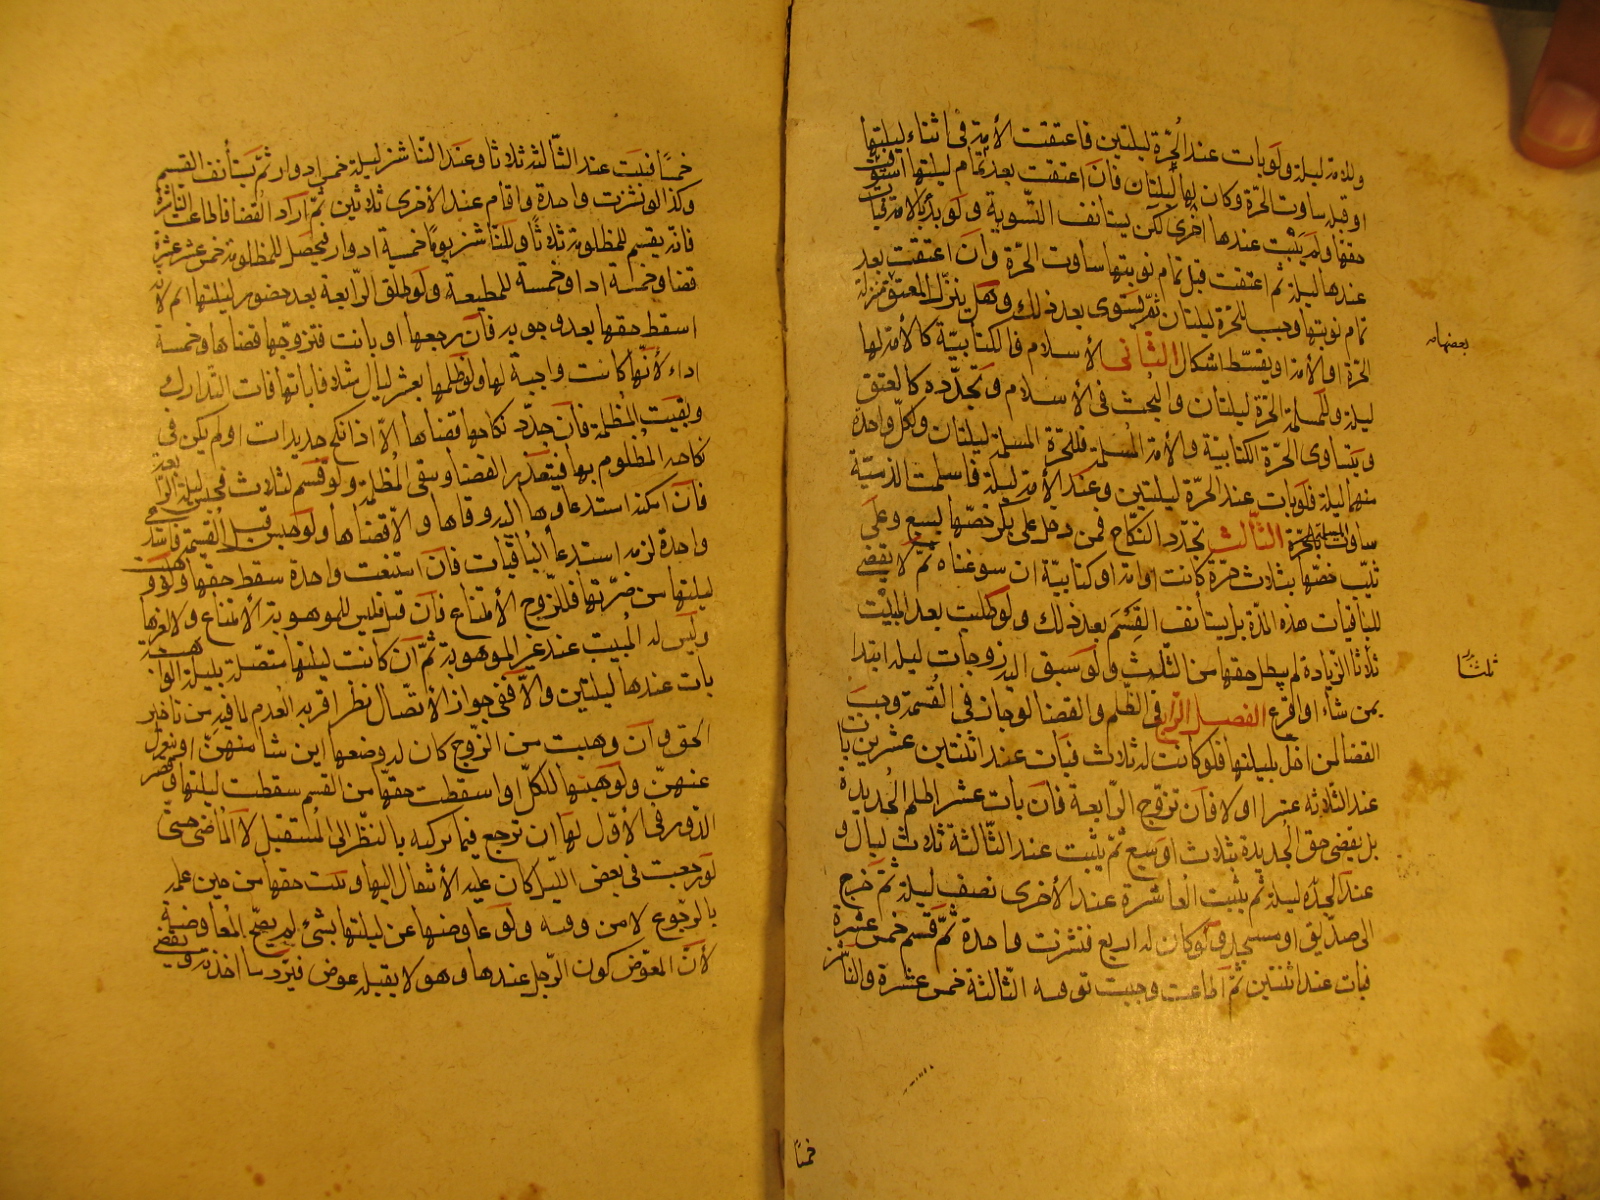 وللامة ليلة ولو بات عند الحرّة ليلتين فاعتقت الأمة في اثناء ليلتها
او قبله ساوت الحرّة وكان لها ليلتان فان اعتقت بعد تمام ليلتها استوفت
حقها ولم يبت عندها اخرى لكن يستانف التّسوية ولو بدأ بالامة فبات
عندها ليلة ثم اعتقت قبل تمام نوبتها ساوت الحرّة وان اعتقت بعد
تمام نوبتها وجب للحرّة ليلتان ثمّ يستوى بعد ذلك وهل ينزّل المعتق منزلة
بعضها
الحرّة او الأمة او يقسّط اشكال الثاني الأسلام فالكتابيّة كالأمة لها
ليلة وللمسلمة الحرّة ليلتان والبحث في الأسلام وتجدّده كالعتق
ويتساوى الحرّة الكتابية والأمة المسلمة فللحرّة المسلمة ليلتان ولكل واحدة
منهما ليلة فلو بات عند الحرّة ليلتين وعند الأمة ليلة فاسلمت الذميّة
ساوت المسلمة الحرّة الثالث تجدّد النكاح فمن دخل على بكر خصّها بسبع وعلى
ثيّب خصّها بثلاث حرّة كانت او امة او كتابيّة ان سوغناه ثم لا يقضى
للباقيات هذه المدّة بل يستأنف القسم بعد ذلك ولو طلبت بعد المبيت
ثلثا
ثلاثا الزيادة لم يبطل حقها من الثلث ولو سبق اليه زوجات ليلة ابتدا
بمن شاء او اقرع الفصل الرابع في الظلم والقضا لو جار في القسمة وجب
القضا لمن اخل بليلتها فلو كانت له ثلاث فبات عند اثنتين عشرين بات
عند الثلاثه عشرا اولا فان تزوّج الرّابعة فان بات عشرا ظلم الجديدة
بل يقضى حق الجديدة بثلاث او سبع ثم يبيت عند الثّالثة ثلاث ليال و
عند الجدّة ليلة ثم يبيت العاشرة عند الأخرى نصف ليلة ثمّ خرج
الى صدّيق او مسجد ولو كان له اربع فنشزت واحدة ثمّ قسم خمس عشرة
فبات عند اثنتين ثمّ اطاعت وجبت توفيه الثّالثة خمس عشرة والناشز
خمسًا
خمسًا فيبيت عند الثّالثة ثلاثا وعند النّاشز ليلة خمس ادوار ثمّ يستأنف القسم
وكذا لو نشزت واحدة واقام عند الأخرى ثلاثين ثمّ اراد القضا فاطاعت الناشز
فانه يقسم للمظلومة ثلاثًا وللنّاشز يومًا خمسة ادوار فيحصل للمظلومة خمس عشرة
قضا وخمسة ادا وخمسة للمطيعة ولو طلّق الرّابعة بعد حضور ليلتها اثم لانه
اسقط حقها بعد وجوبه فان رجعها او بانت فتزوّجها قضاها وخمسة
اداء لأنّها كانت واجبة لها ولو ظلمها بعشر ليال مثلا فابانها فات التّدارك
وبقيت المظلمة فان جدّد نكاحها قضاها الاّ اذا نكح جديدات او لم يكن في
نكاحه المظلوم بها فيتعذر القضا وتبقى المظلمة ولو قسم لثلاث فحبس ليلة الرّابع
فان امكنه استدعاؤها اليه وفاها والاّ قضاها ولو حبس قبل القسمة فاستدعى
واحدة لزمه استدعا الباقيات فان امتنعت واحدة سقط حقها ولو وهبت
ليلتها من ضرّتها فللزّوج الأمتناع فان قبل فليس للموهوبة الأمتناع ولا لغيرها
وليس له المبيت عند غير الموهوبة ثمّ ان كانت ليلتها متصلة بليلة الواهبة
بات عندها ليلتين والاّ ففي جواز الأتصال نظر اقربه العدم لما فيه من تاخير
الحق وان وهبت من الزّوج كان له وضعها اين شا منهنّ او يعزل
عنهنّ ولو وهبتها للكلّ او اسقطت حقها من القسم سقطت ليلتها وقصر
الدور في الأوّل لها ان ترجع فيما تركته بالنظر الى المستقبل لا الماضي حتى
لو رجعت في بعض الليل كان عليه الأنتقال اليها ويثبت حقها من حين علمه
بالرجوع لا من وقته ولو عاوضها عن ليلتها بشئ لم يصحّ المعاوضة
لأنّ المعوّض كون الرّجل عندها وهو لا يقبل عوض فيردّ ما اخذته ويقضى